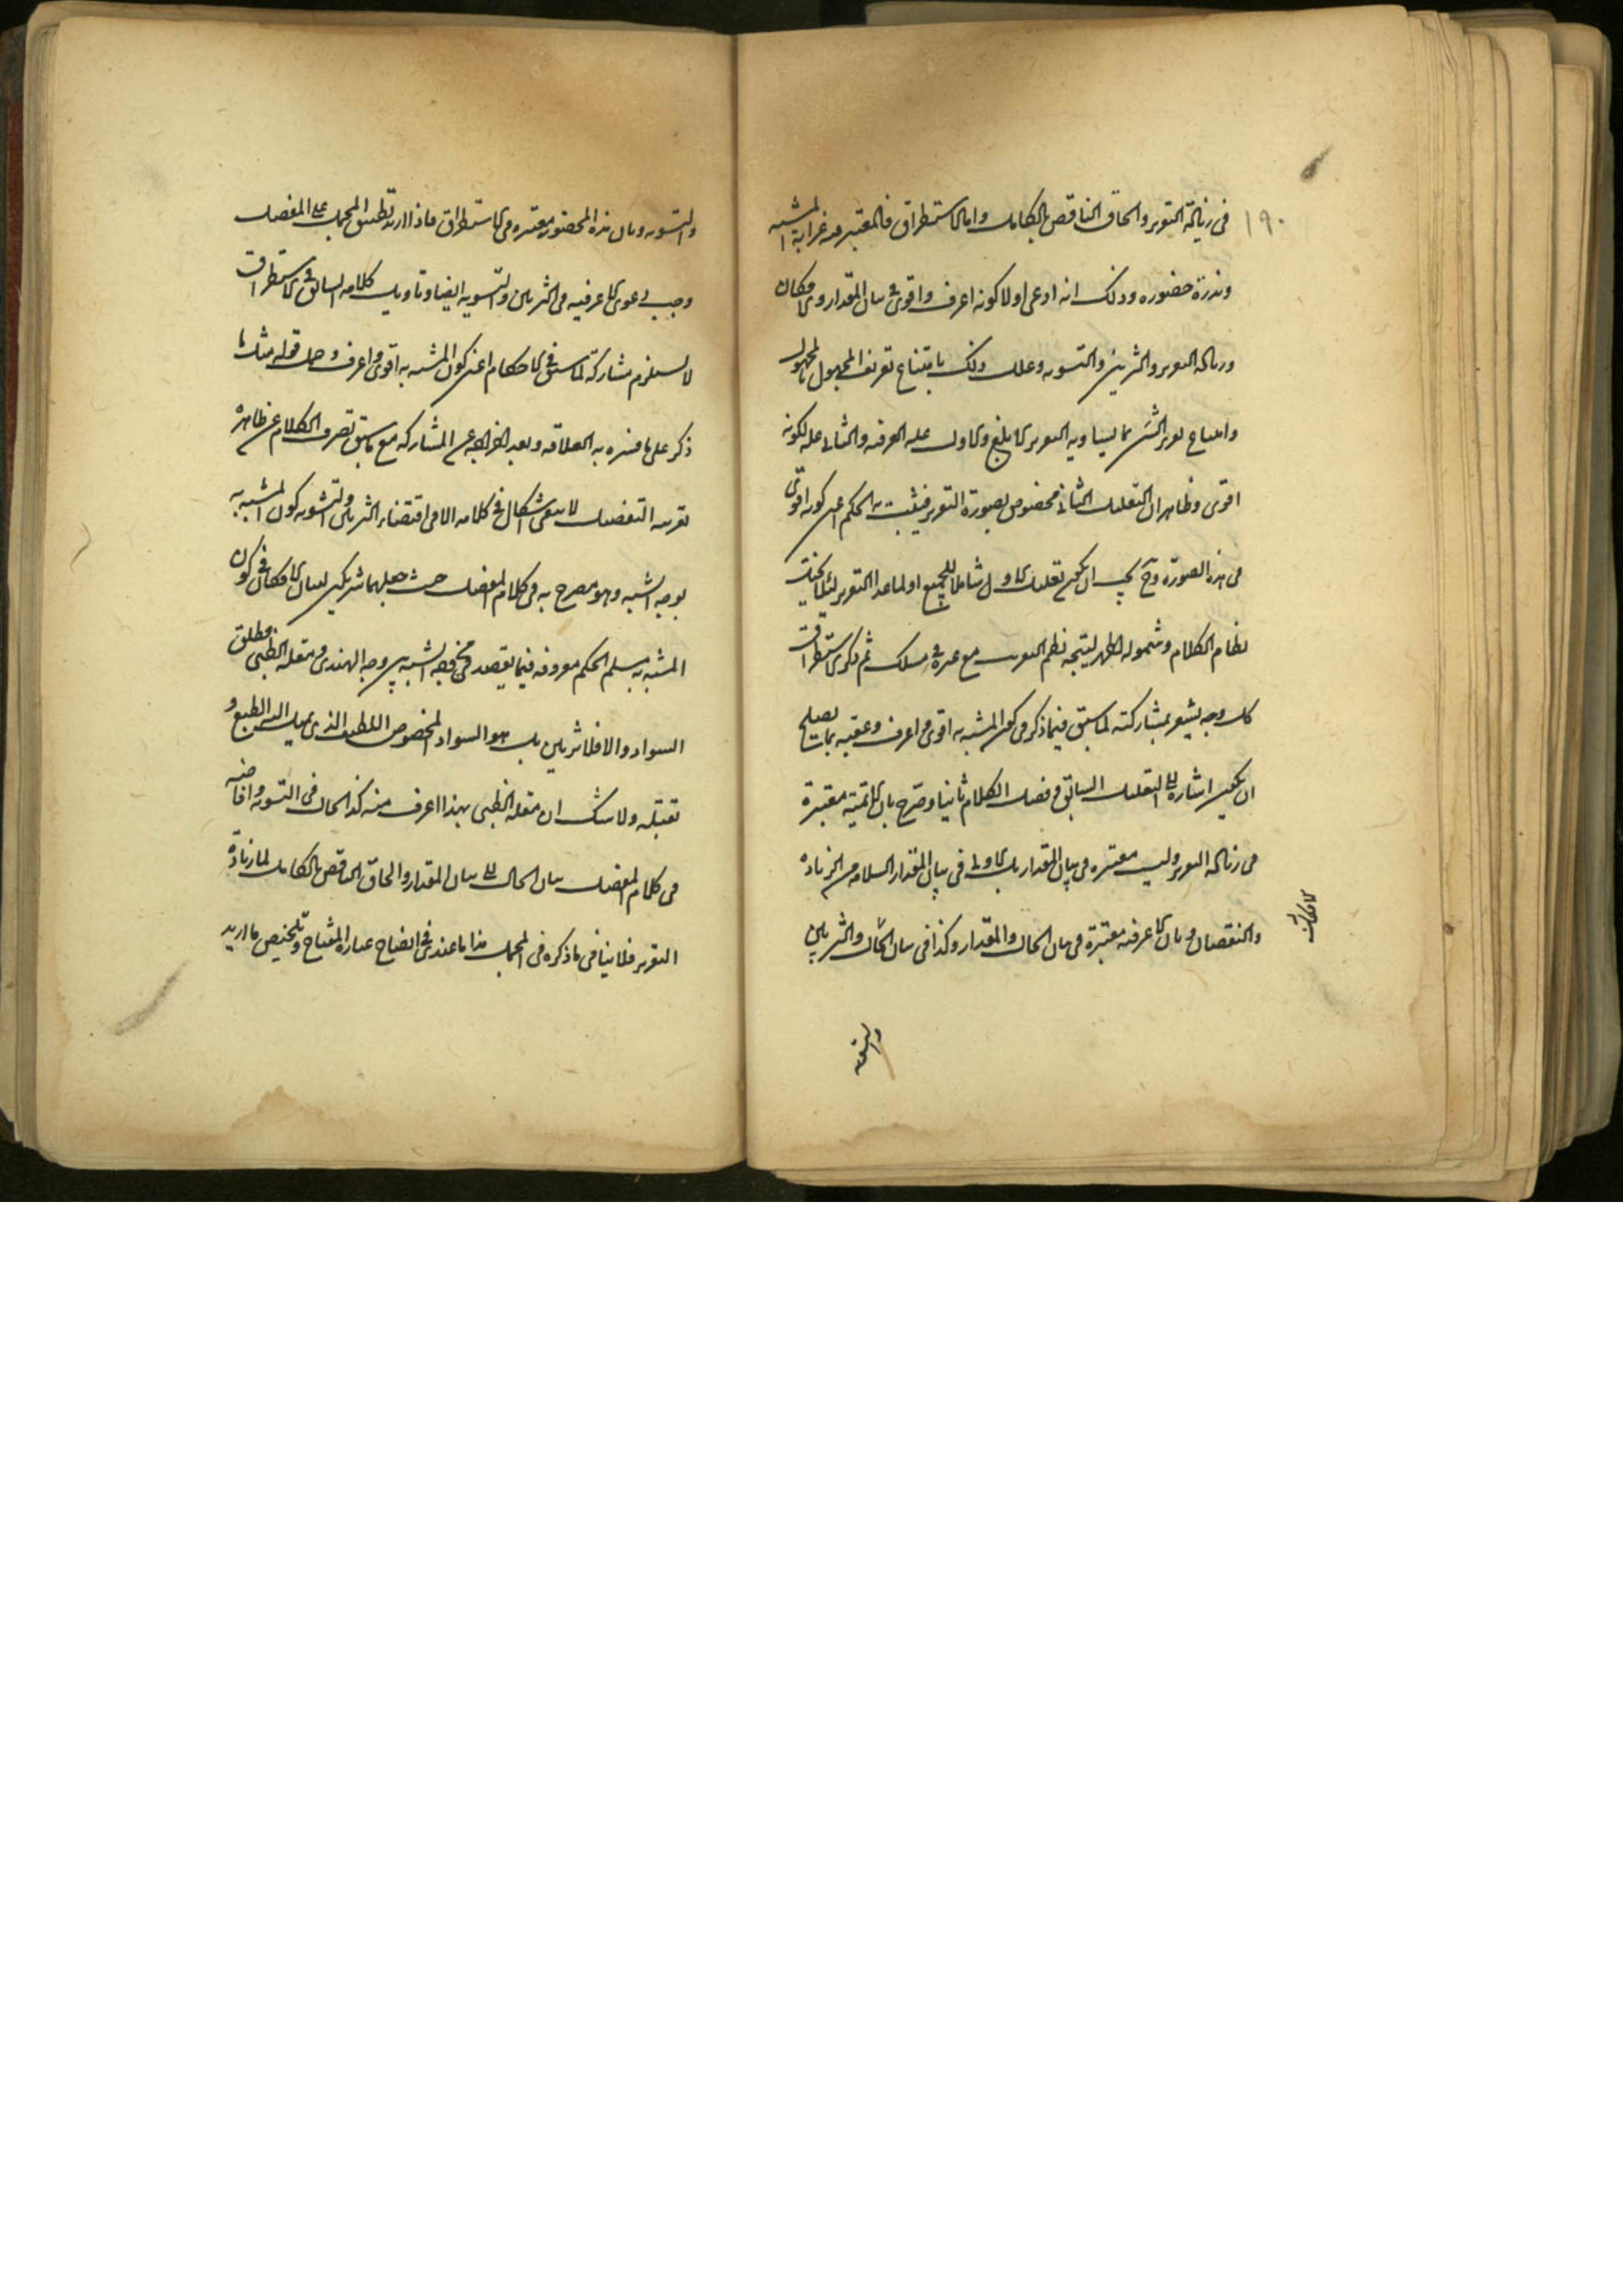 ١٩٠
في زيادة التقرير والحاق الناقص بالكامل واما الاستطراف فالمعتبر فيه غرابة المشبه
وندرة حضوره وذلك انه ادعى اولا كونه اعرف واقوى في بيان المقدار والامكان
وزيادة التقرير والتزيين والتشويه وعلل ذلك بامتناع تعريف المجهول بالمجهول
وامتناع تقرير الشيء بما يساويه التقرير الابلغ والاول علة الاعرفية والثاني علة لكونه
اقوى وظاهر ان التعليل الثاني مخصوص بصورة التقرير فيثبت به الحكم اعني كونه اقوى
في هذه الصورة وح يجب ان يكون تعليل الاول شاملا للجميع او لما عدا التقرير لئلا يختل
نظام الكلام وشموله اظهر ليتجه نظم التقرير مع غيره في مسلك ثم ذكر الاستطراف
على وجه يشعر بمشاركته لما سبق فيما ذكر من كون المشبه به اقوى واعرف وعقبه بما يصلح
ان يكون اشارة الى التعليل السابق وفصل الكلام ثانيا وصرح بان الاتمية معتبرة
في زيادة التقرير وليست معتبرة في بيان المقدار بل الاولى في بيان المقدار السلامة من الزيادة
والنقصان وبان الاعرفية معتبرة في بيان الحال والمقدار وكذا في بيان الامكان والتزيين
الامكان
والتشويه
والتشويه وبان ندرة الحضور معتبرة في الاستطراف فاذا اريد تطبيق المجمل على المفصل
وجب دعوى الاعرفية في التزيين والتشويه ايضا وتاويل كلامه السابق في الاستطراف
لا يستلزم مشاركته لما سبق في الاحكام اعني كون المشبه به اقوى واعرف وحمل قوله مثل ما
ذكر على ما فسره به العلاقة وبعد اخراجه عن المشاركة مع ما سبق تصرف الكلام عن ظاهره
بقرينة التفصيل لا يبقى اشكال في كلامه الا في اقتضاء التزيين والتشويه كون المشبه به
بوجه الشبه وهو مصرح به في كلام المفصل حيث جعلهما شريكين لبيان الامكان في كون
المشبه به مسلم الحكم معروفه فيما يقصد من وجه الشبه بين وجه الهندي ومقلة الظبي مطلق
السواد والا فلا تزيين بل هو السواد المخصوص اللطيف الذي يميل اليه الطبع و
تقبله ولا شك ان مقلة الظبي بهذا اعرف منه كذا الحال في التشويه واضافته
في كلام المفصل بيان الحال الى بيان المقدار والحاق الناقص بالكامل لما زيادة
التقرير فلا ينافي ما ذكره في المجمل هذا ما عندي في ايضاح عبارة المفتاح وتلخيص ما اريد